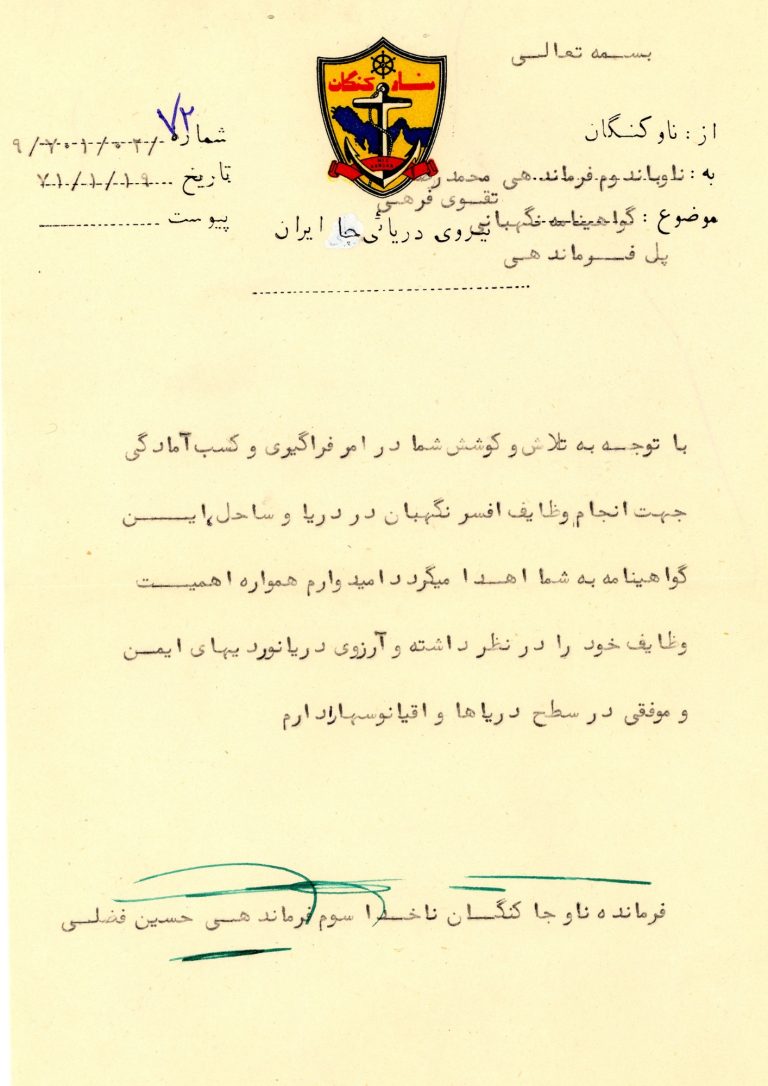 بسمه تعالی
ناو کنگان
از : ناو کنگان
به : ناوبان دوم فرماندهی محمد رضا
تقوی فرهی
موضوع : گواهینامه نگهبانی
پل فرماندهی
نیروی دریائی جا ایران
شماره
۷۲
تاریخ ۷۱/۱/۱۹
پیوست
با توجه به تلاش و کوشش شما در امر فراگیری و کسب آمادگی
جهت انجام وظایف افسر نگهبان در دریا و ساحل، این
گواهینامه به شما اهدا میگردد امیدوارم همواره اهمیت
وظایف خود را در نظر داشته و آرزوی دریانوردیهای ایمن
و موفقی در سطح دریاها و اقیانوسها را دارم
فرمانده ناو جا کنگان ناخدا سوم فرماندهی حسین فضلی